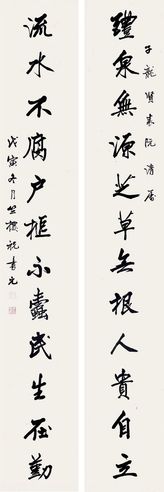 醴泉無源芝草無根人貴自立
子龍賢表阮清屬
流水不腐户樞不蠹民生在勤
戊寅冬月